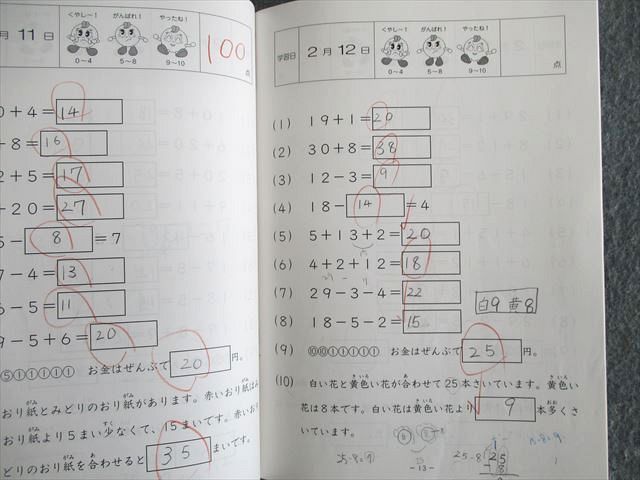 月 11 日
くやし〜!
がんばれ!
やったね!
0〜4
5〜8
9〜10
100
点
0+4=14
+8=16
2+5=17
+20=27
5-8=7
7-4=13
6-5=11
9-5+6=20
⑤①①①①① お金はぜんぶで20円。
おり紙とみどりのおり紙があります。赤いおり紙は
おり紙より5まい少なくて、15まいです。赤い
どりのおり紙を合わせると35まいです。
学習日
2月12日
くやし〜!
がんばれ!
やったね!
0〜4
5〜8
9〜10
点
(1) 19+1=20
(2) 30+8=38
(3) 12-3=9
(4) 18-14=4
(5) 5+13+2=20
(6) 4+2+12=18
(7) 29-3-4=22
(8) 18-5-2=15
白9 黄8
(9) お金はぜんぶで25円。
(10) 白い花と黄色い花が合わせて25本さいています。黄色い
花は8本です。白い花は黄色い花より9本多くさ
いています。
25-8
25
-8
-13-